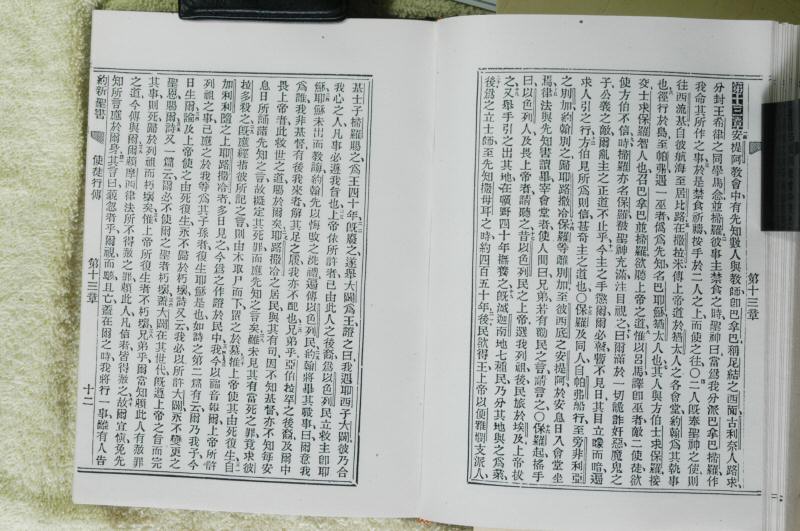 第十三章
第十三章安提阿敎會中有先知數人與敎師卽巴拿巴稱尼結之西面古利奈人路求
分封王希律之同學馬念並掃羅彼事主禁食之時聖神曰當爲我分派巴拿巴掃羅作
我命其所作之事於是禁食祈禱按手於二人之上而使之往〇二人旣奉聖神之使則
往西流基自彼航海至居比路在撒拉米傳上帝道於猶太人之各會堂約翰爲其執事
也徑行於島至帕弗遇一巫者僞爲先知名巴耶穌猶太人也其人與方伯士求保羅接
交士求保羅智人也召巴拿巴並掃羅欲聽上帝之道惟以呂馬譯卽巫者敵二使徒欲
使方伯不信時掃羅亦名保羅被聖神充滿注目視之曰爾滿於一切詭詐奸惡魔鬼之
子公義之敵爾亂主之正道不止乎今主之手懲爾爾必瞽暫不見日其目立矇而暗遍
求人引之行方伯見所爲則信甚奇主之道也〇保羅及同人自帕弗船行至旁非利亞
之別加約翰別之歸耶路撒冷保羅等離別加至彼西底之安提阿於安息日入會堂坐
焉律法與先知書讀畢宰會堂者使人問曰兄弟若有勸民之言請言之〇保羅起搖手
曰以色列人及畏上帝者請聽之昔以色列民之上帝選我列祖後民旅於埃及上帝拔
之又舉手引之出其地在曠野四十年撫養之旣滅迦南地七種民乃分其地與之爲業
後爲之立士師至先知撒母耳之時約四百五十年後民欲得王上帝以便雅憫支派人
基士子掃羅賜之爲王四十年旣廢之遂舉大闢爲王證之曰我遇耶西子大闢彼乃合
我心之人凡事必遵我旨也上帝依所許者已由此人之後裔爲以色列民立救主卽耶
穌耶穌未出而約翰先以悔改之洗禮遍傳以色列民約翰將畢其職事曰爾意我
爲誰我非基督有後我來者解其足之屨我亦不配也兄弟乎亞伯拉罕之後裔及爾中
畏上帝者此救世之道賜於爾矣耶路撒冷之居民與其有司因不知基督亦不知每安
息日所誦諸先知之言故擬定其死罪而應先知之言矣雖未見其有當死之罪竟求彼
拉多殺之旣應經指彼所記之言則由木取下而置之於墓惟上帝使其由死復生自
加利利隨之上耶路撒冷者多日見之今爲之作證於民中我今以福音報爾上帝所許
列祖之事已應之於我等爲其子孫者復生耶穌是也如詩之第二篇有云爾乃我子今
日生爾論及上帝使之由死復生永不歸於朽壞詩又云我必以所許大闢永不變更之
聖恩賜爾詩又一篇云爾必不使爾之聖者朽壞蓋大闢在其世代旣遵上帝之旨而完
其事則死歸於列祖而朽壞矣惟上帝所復生者不朽壞兄弟乎爾當知賴此人有赦罪
之道今傳與爾賴摩西律法所不得赦之罪賴此人凡信者皆得赦之故爾宜愼免先
知所言應於爾身其言曰藐忽者乎爾視而駭且亡蓋在爾之時我將行一事雖有人告
約新聖書　使徒行傳　第十三章　十二